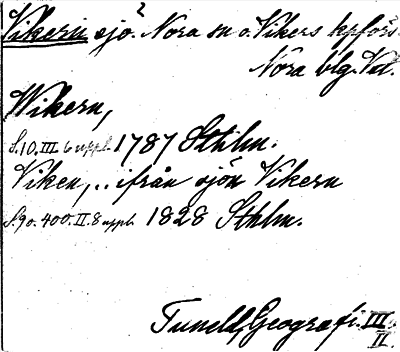 Vikern sjö. Nora sn o. Vikers kpförs.
Nora blg. Vstl.
Wikern,
S.10. III 6 uppl. 1787 Sthlm.
Viken, .. ifrån sjön Vikern
S.90. 400. II. 8 uppl. 1828 Sthlm.
Tuneld, Geografi. III.
II.